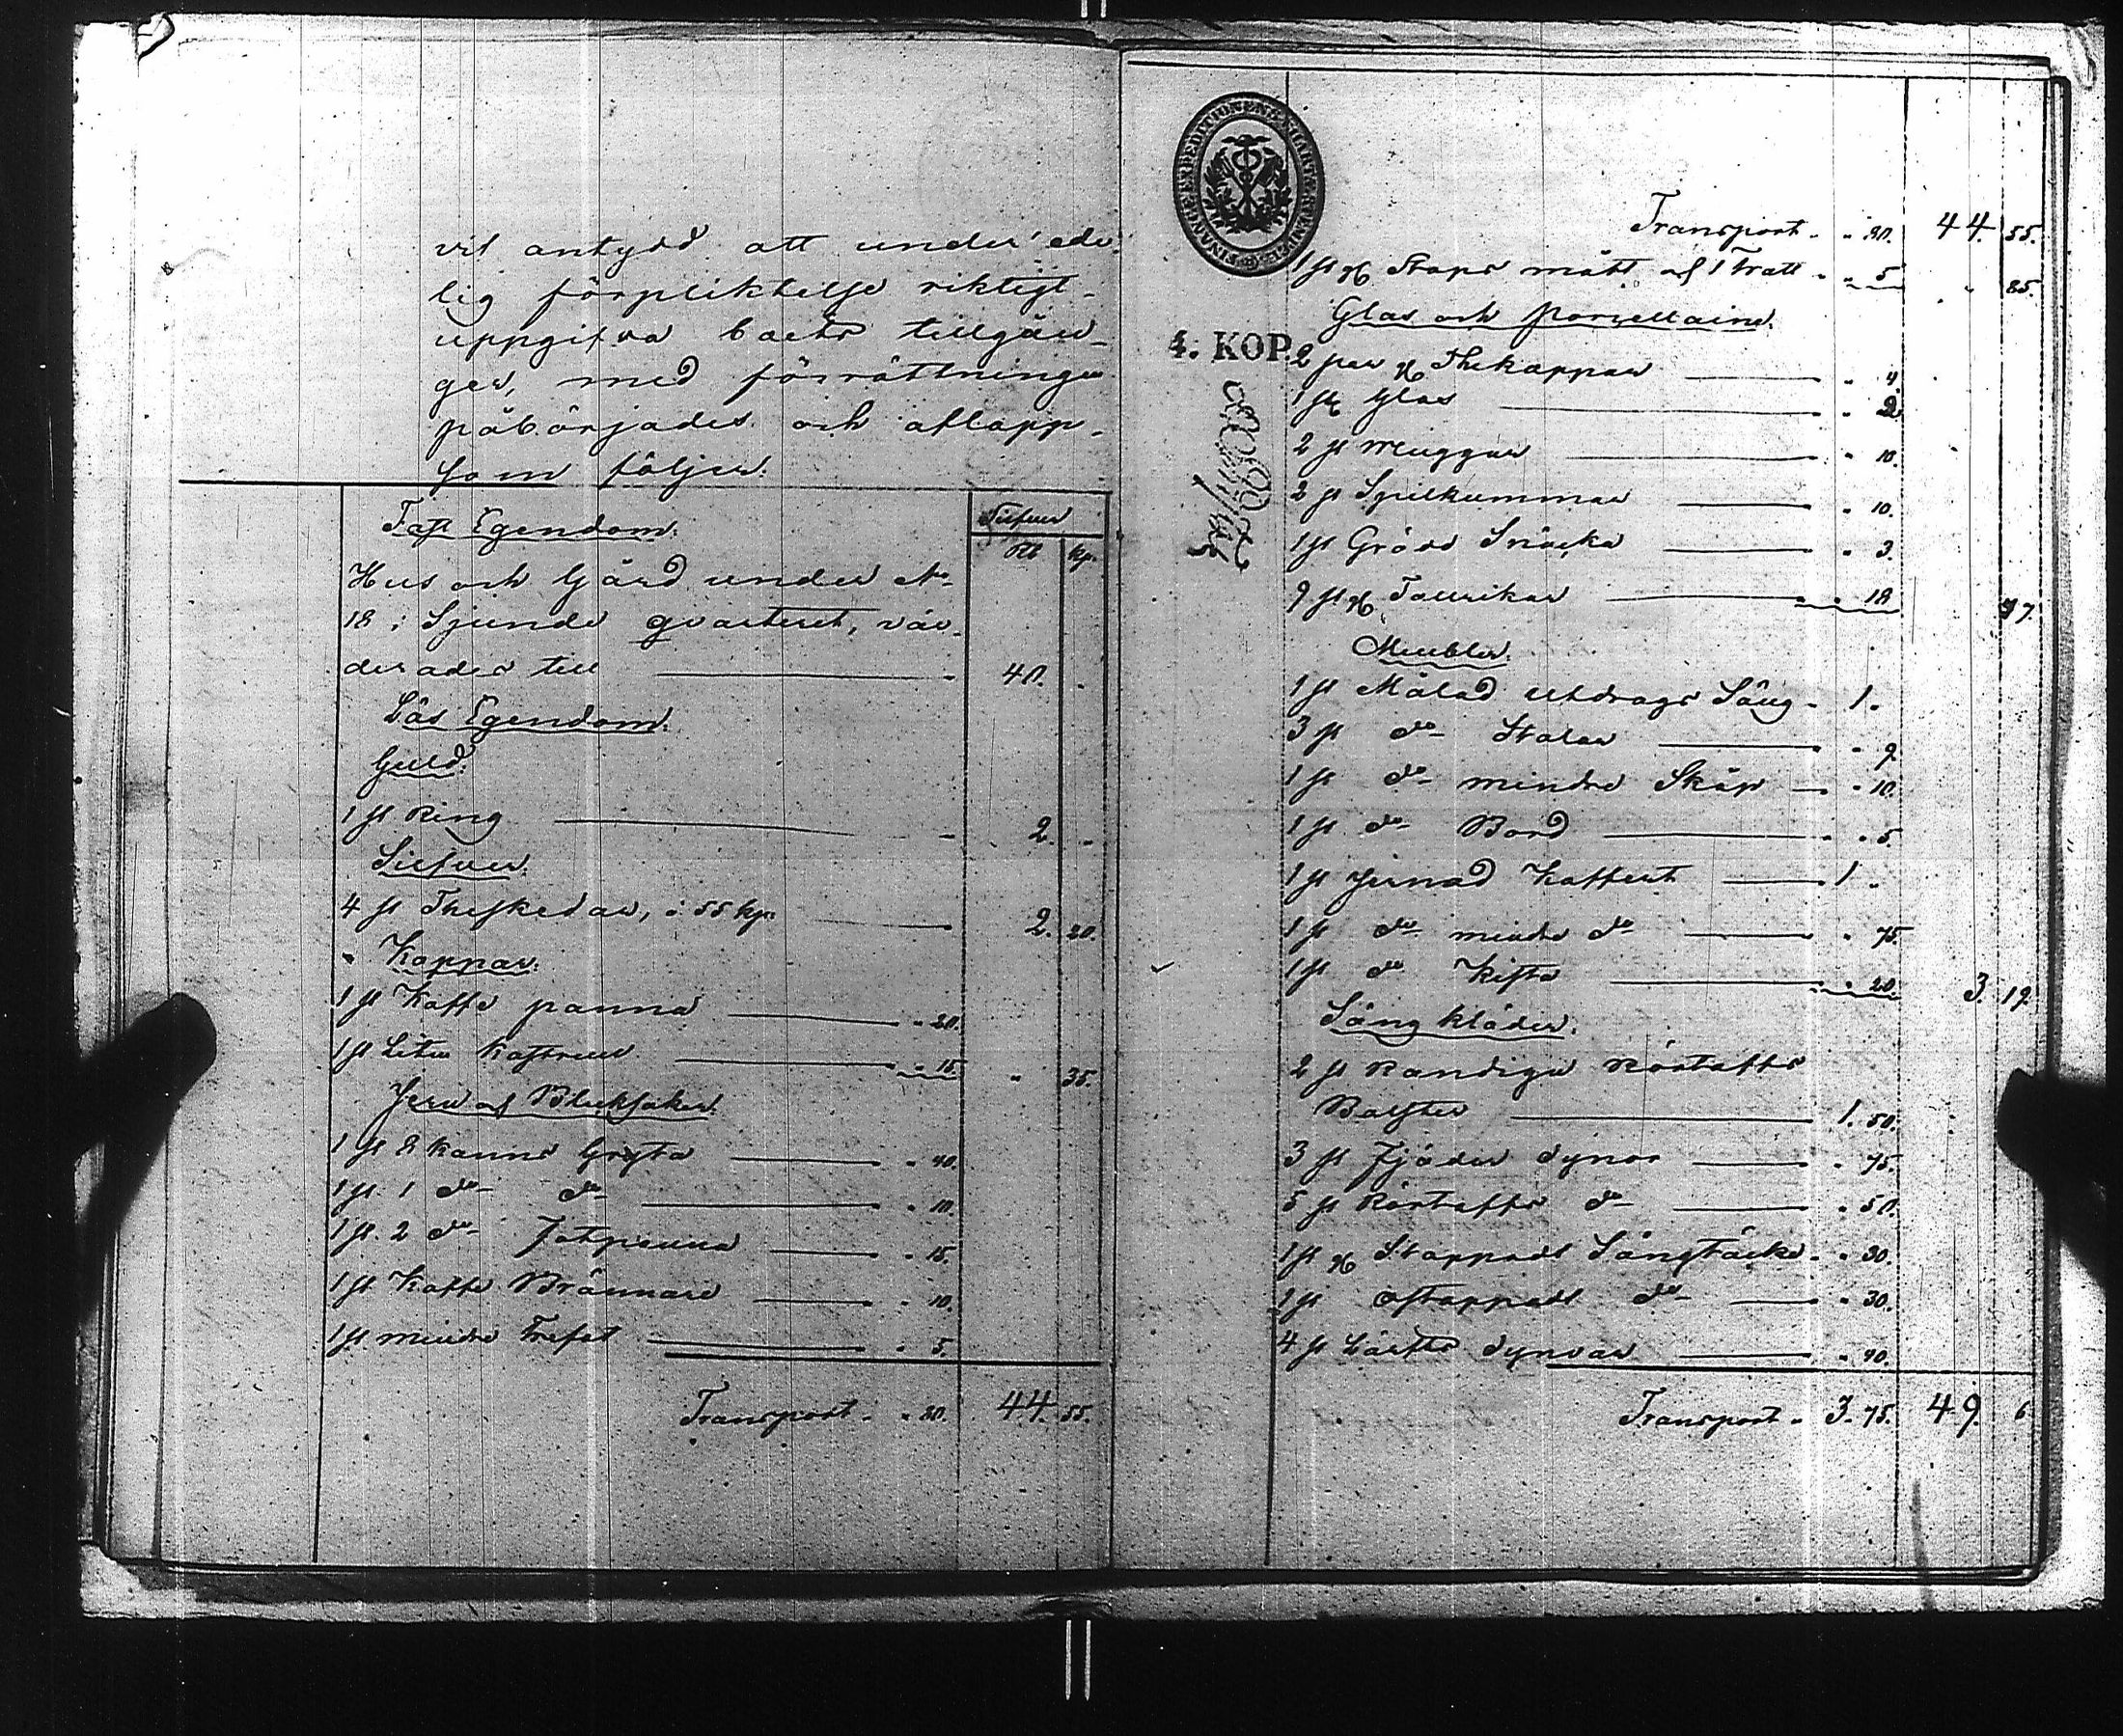 vil antydd att under ede-
lig förpliktelse riktigt
uppgifva boets tillgån-
gar, med förrättningen
påbörjades och aflopp
som följer:
Fast Egendom. Silfver
Rb kp.
Hus och Gård under No
18 i Sjunde qvarteret, vär-
derades till 40. -
Lös Egendom.
Guld.
1 st Ring 2. -
Silfver.
4 st Theskedar, à 55 kp. 2. 20.
Koppar.
1 st Kaffe panna " 20.
1 st Liten Kastrull " 15. " 35.
Jern och Bleksaker.
1 st 8 kanns Gryta " 40.
1 st 1 do do " 10.
1 st 2 do Fotpanna " 15.
1 st Kaffe Brännare " 10.
1 st mindre Trefot " 5.
Transport " 80. 44. 55.
FINANCE EXPEDITIONENS CHARTÆ
4. KOP.
Transport " 80. 44. 55.
1 st Stops mått o 1 Tratt " 5 " 85.
Glas och Porzellaine.
2 par Thekoppar " 4.
1 st Glas " 2.
2 st Muggar " 10.
2 st Spilkummar " 10.
1 st Grädd Snäcka " 3.
9 st Tallrikar " 18 47.
Meubler.
1 st Målad Utdrags Säng 1.
3 st do Stolar " 9
1 st do mindre Skåp " 10.
1 st do Bord " 5.
1 st Jernad Koffert 1 "
1 st do mindre do " 75.
1 st do Kista " 20. 3. 19.
Sängkläder.
2 st Randiga Röstofts
Bolster 1. 50.
3 st Fjäder dynor " 75.
5 st Röstofts do " 50.
1 st Stoppadt Sängtäcke " 30.
1 st ostoppadt do " 30.
4 st Lärfts dynvar " 40.
Transport 3. 75. 49. 6